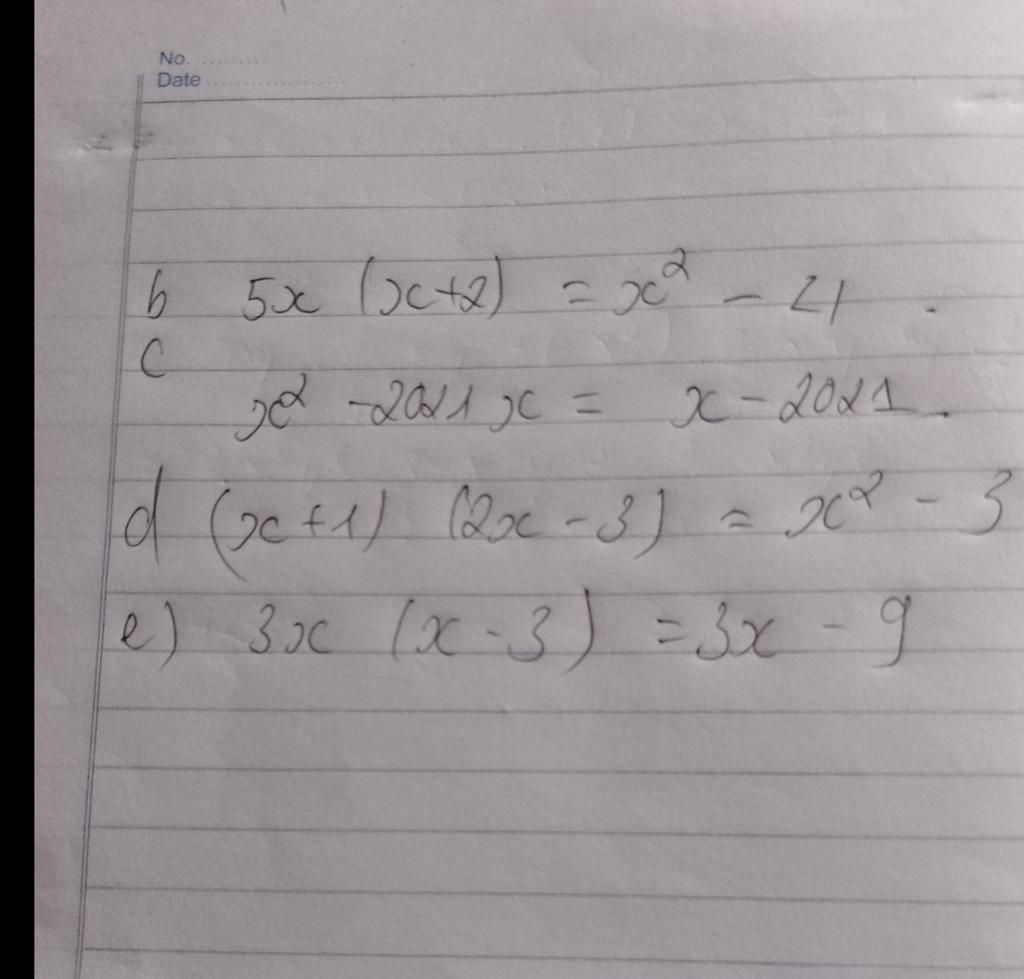 No. ............
Date ........................
b 5x (x+2) = x² - 4 .
c
x² - 2021x = x - 2021.
d (x+1) (2x - 3) = x² - 3
e) 3x (x - 3) = 3x - 9